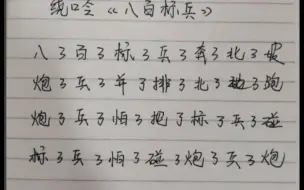 绕口令《八百标兵》
八了百了标了兵了奔了北了坡
炮了兵了并了排了北了边了跑
炮了兵了怕了把了标了兵了碰
标了兵了怕了碰了炮了兵了炮